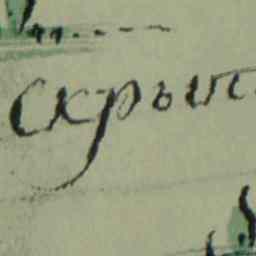 скрып